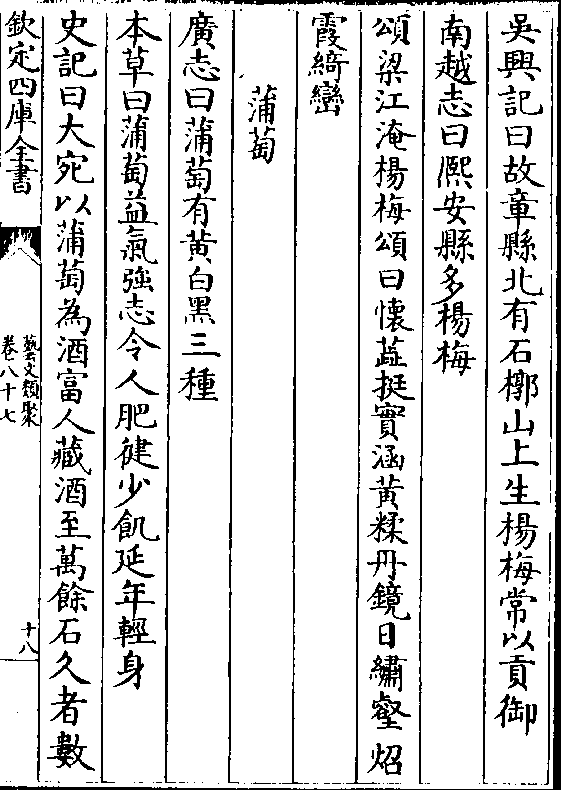 吳興記曰故章縣北有石槨山上生楊梅常以貢御
南越志曰熈安縣多楊梅
頌梁江淹楊梅頌曰懷蘂挺實涵黃糅丹鏡日繡壑炤
霞綺巒
蒲萄
廣志曰蒲萄有黃白黑三種
本草曰蒲萄益氣強志令人肥健少飢延年輕身
史記曰大宛以蒲萄為酒富人藏酒至萬餘石久者數
欽定四庫全書
藝文類聚
卷八十七
十八